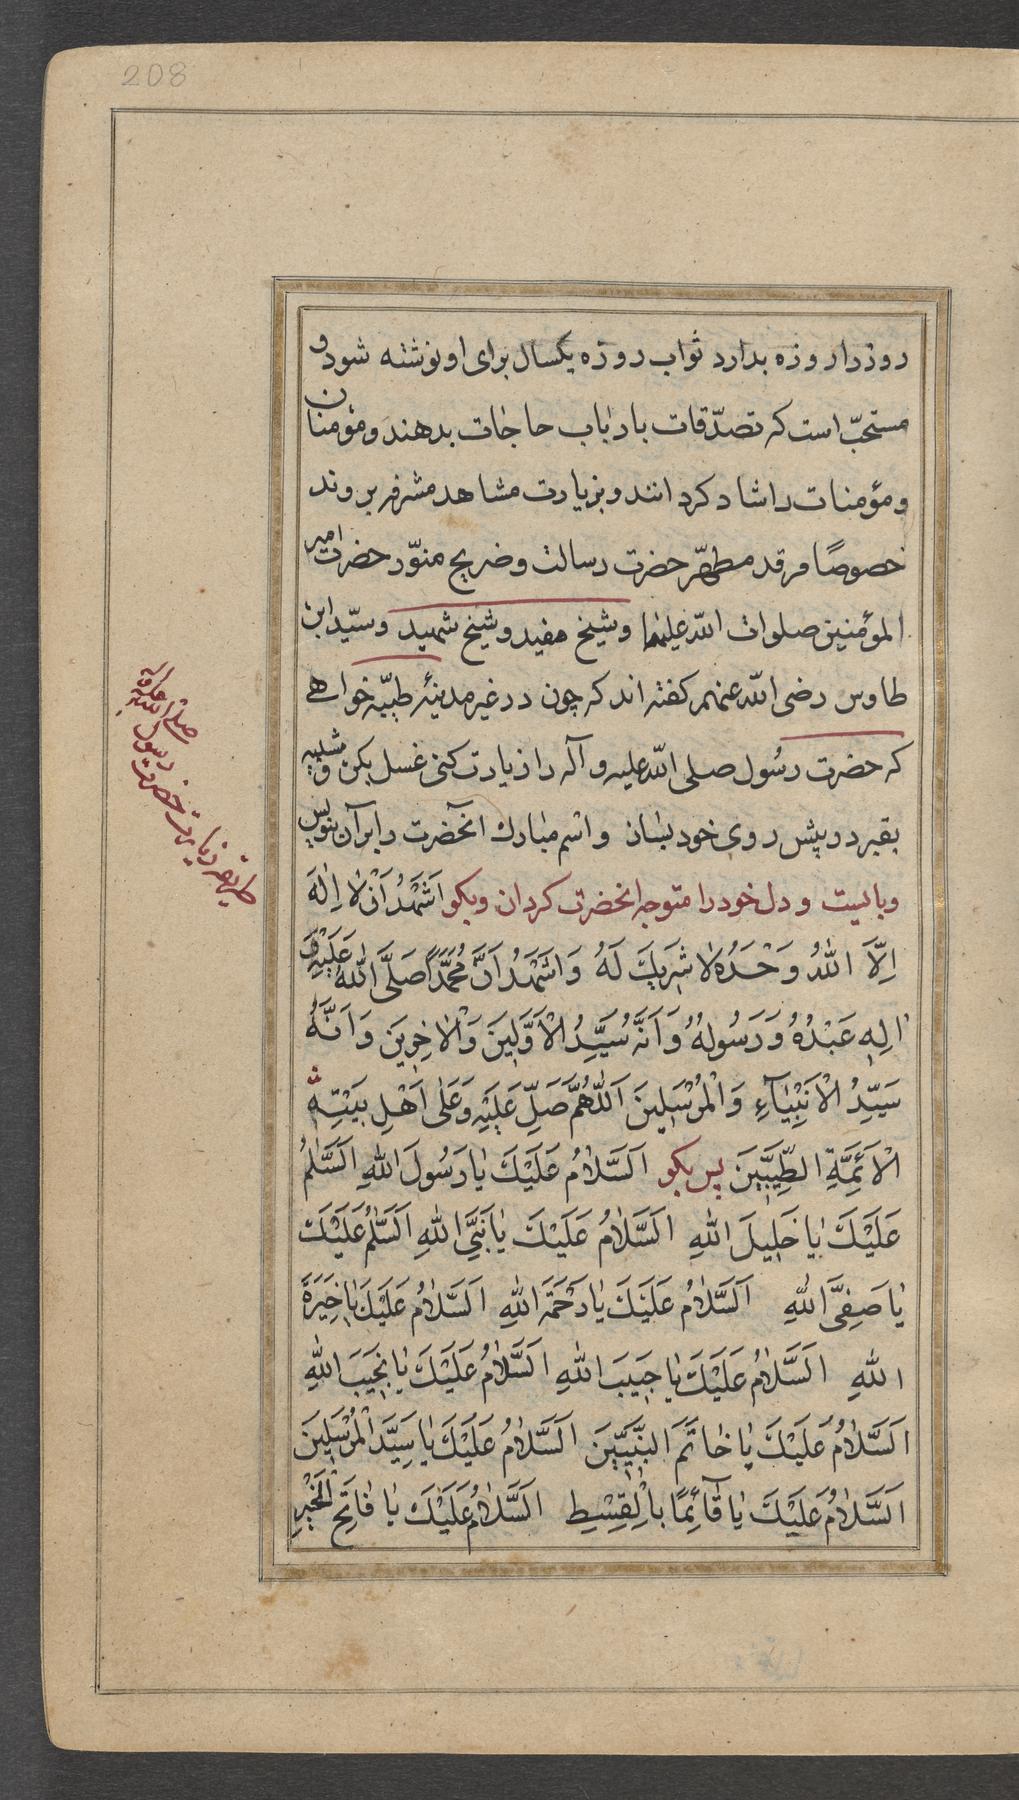 208
روز را روزه بدارد ثواب روزه یکسال برای او نوشته شود و
مستحبّ است که تصدّقات بارباب حاجات بدهند و مؤمنان
و مؤمنات را شاد کردانند و بزیارت مشاهد مشرفه بروند
خصوصًا مرقد مطهّر حضرت رسالت و ضریح منوّر حضرت امیر
المؤمنین صلوات اللّه علیهما و شیخ مفید و شیخ شهید و سیّد ابن
طاوس رضی اللّه عنهم کفته اند که چون در غیر مدینهٔ طیّبه خواهی
که حضرت رسُول صلی اللّه علیه و آله را زیارت کنی غسل بکن و شبیه
بقبر در پیش روی خود بساز و اسم مبارك آنحضرت را بر آن بنویس
و بایست و دل خود را متوجه انحضرت کردان و بکو اَشْهَدُ اَنْ لا اِلٰهَ
اِلَّا اللّٰهُ وَحْدَهُ لا شَرِیكَ لَهُ وَ اَشْهَدُ اَنَّ مُحَمَّدًا صَلَّی اللّٰهُ عَلَیْهِ وَ
اٰلِهِ عَبْدُهُ وَ رَسُولُهُ وَ اَنَّهُ سَیِّدُ الْاَوَّلِینَ وَ الْاٰخِرِینَ وَ اَنَّهُ
سَیِّدُ الْاَنْبِیٰآءِ وَ الْمُرْسَلِینَ اَللّٰهُمَّ صَلِّ عَلَیْهِ وَ عَلٰی اَهْلِ بَیْتِهِ
الْاَئِمَّةِ الطَّیِّبِینَ پس بکو اَلسَّلٰامُ عَلَیْكَ یٰا رَسُولَ اللّٰهِ اَلسَّلٰمُ
عَلَیْكَ یٰا خَلِیلَ اللّٰهِ اَلسَّلٰامُ عَلَیْكَ یٰا نَبِیَّ اللّٰهِ اَلسَّلٰمُ عَلَیْكَ
یٰا صَفِیَّ اللّٰهِ اَلسَّلٰامُ عَلَیْكَ یٰا رَحْمَةَ اللّٰهِ اَلسَّلٰامُ عَلَیْكَ یٰا خِیَرَةَ
اللّٰهِ اَلسَّلٰامُ عَلَیْكَ یٰا حَبِیبَ اللّٰهِ اَلسَّلٰامُ عَلَیْكَ یٰا نَجِیبَ اللّٰهِ
اَلسَّلٰامُ عَلَیْكَ یٰا خٰاتَمَ النَّبِیِّینَ اَلسَّلٰامُ عَلَیْكَ یٰا سَیِّدَ الْمُرْسَلِینَ
اَلسَّلٰامُ عَلَیْكَ یٰا قٰآئِمًا بِالْقِسْطِ اَلسَّلٰامُ عَلَیْكَ یٰا فٰاتِحَ الْخَیْرِ
طریقه زیارت حضرت
رسول
صلی اللّه علیه و آله